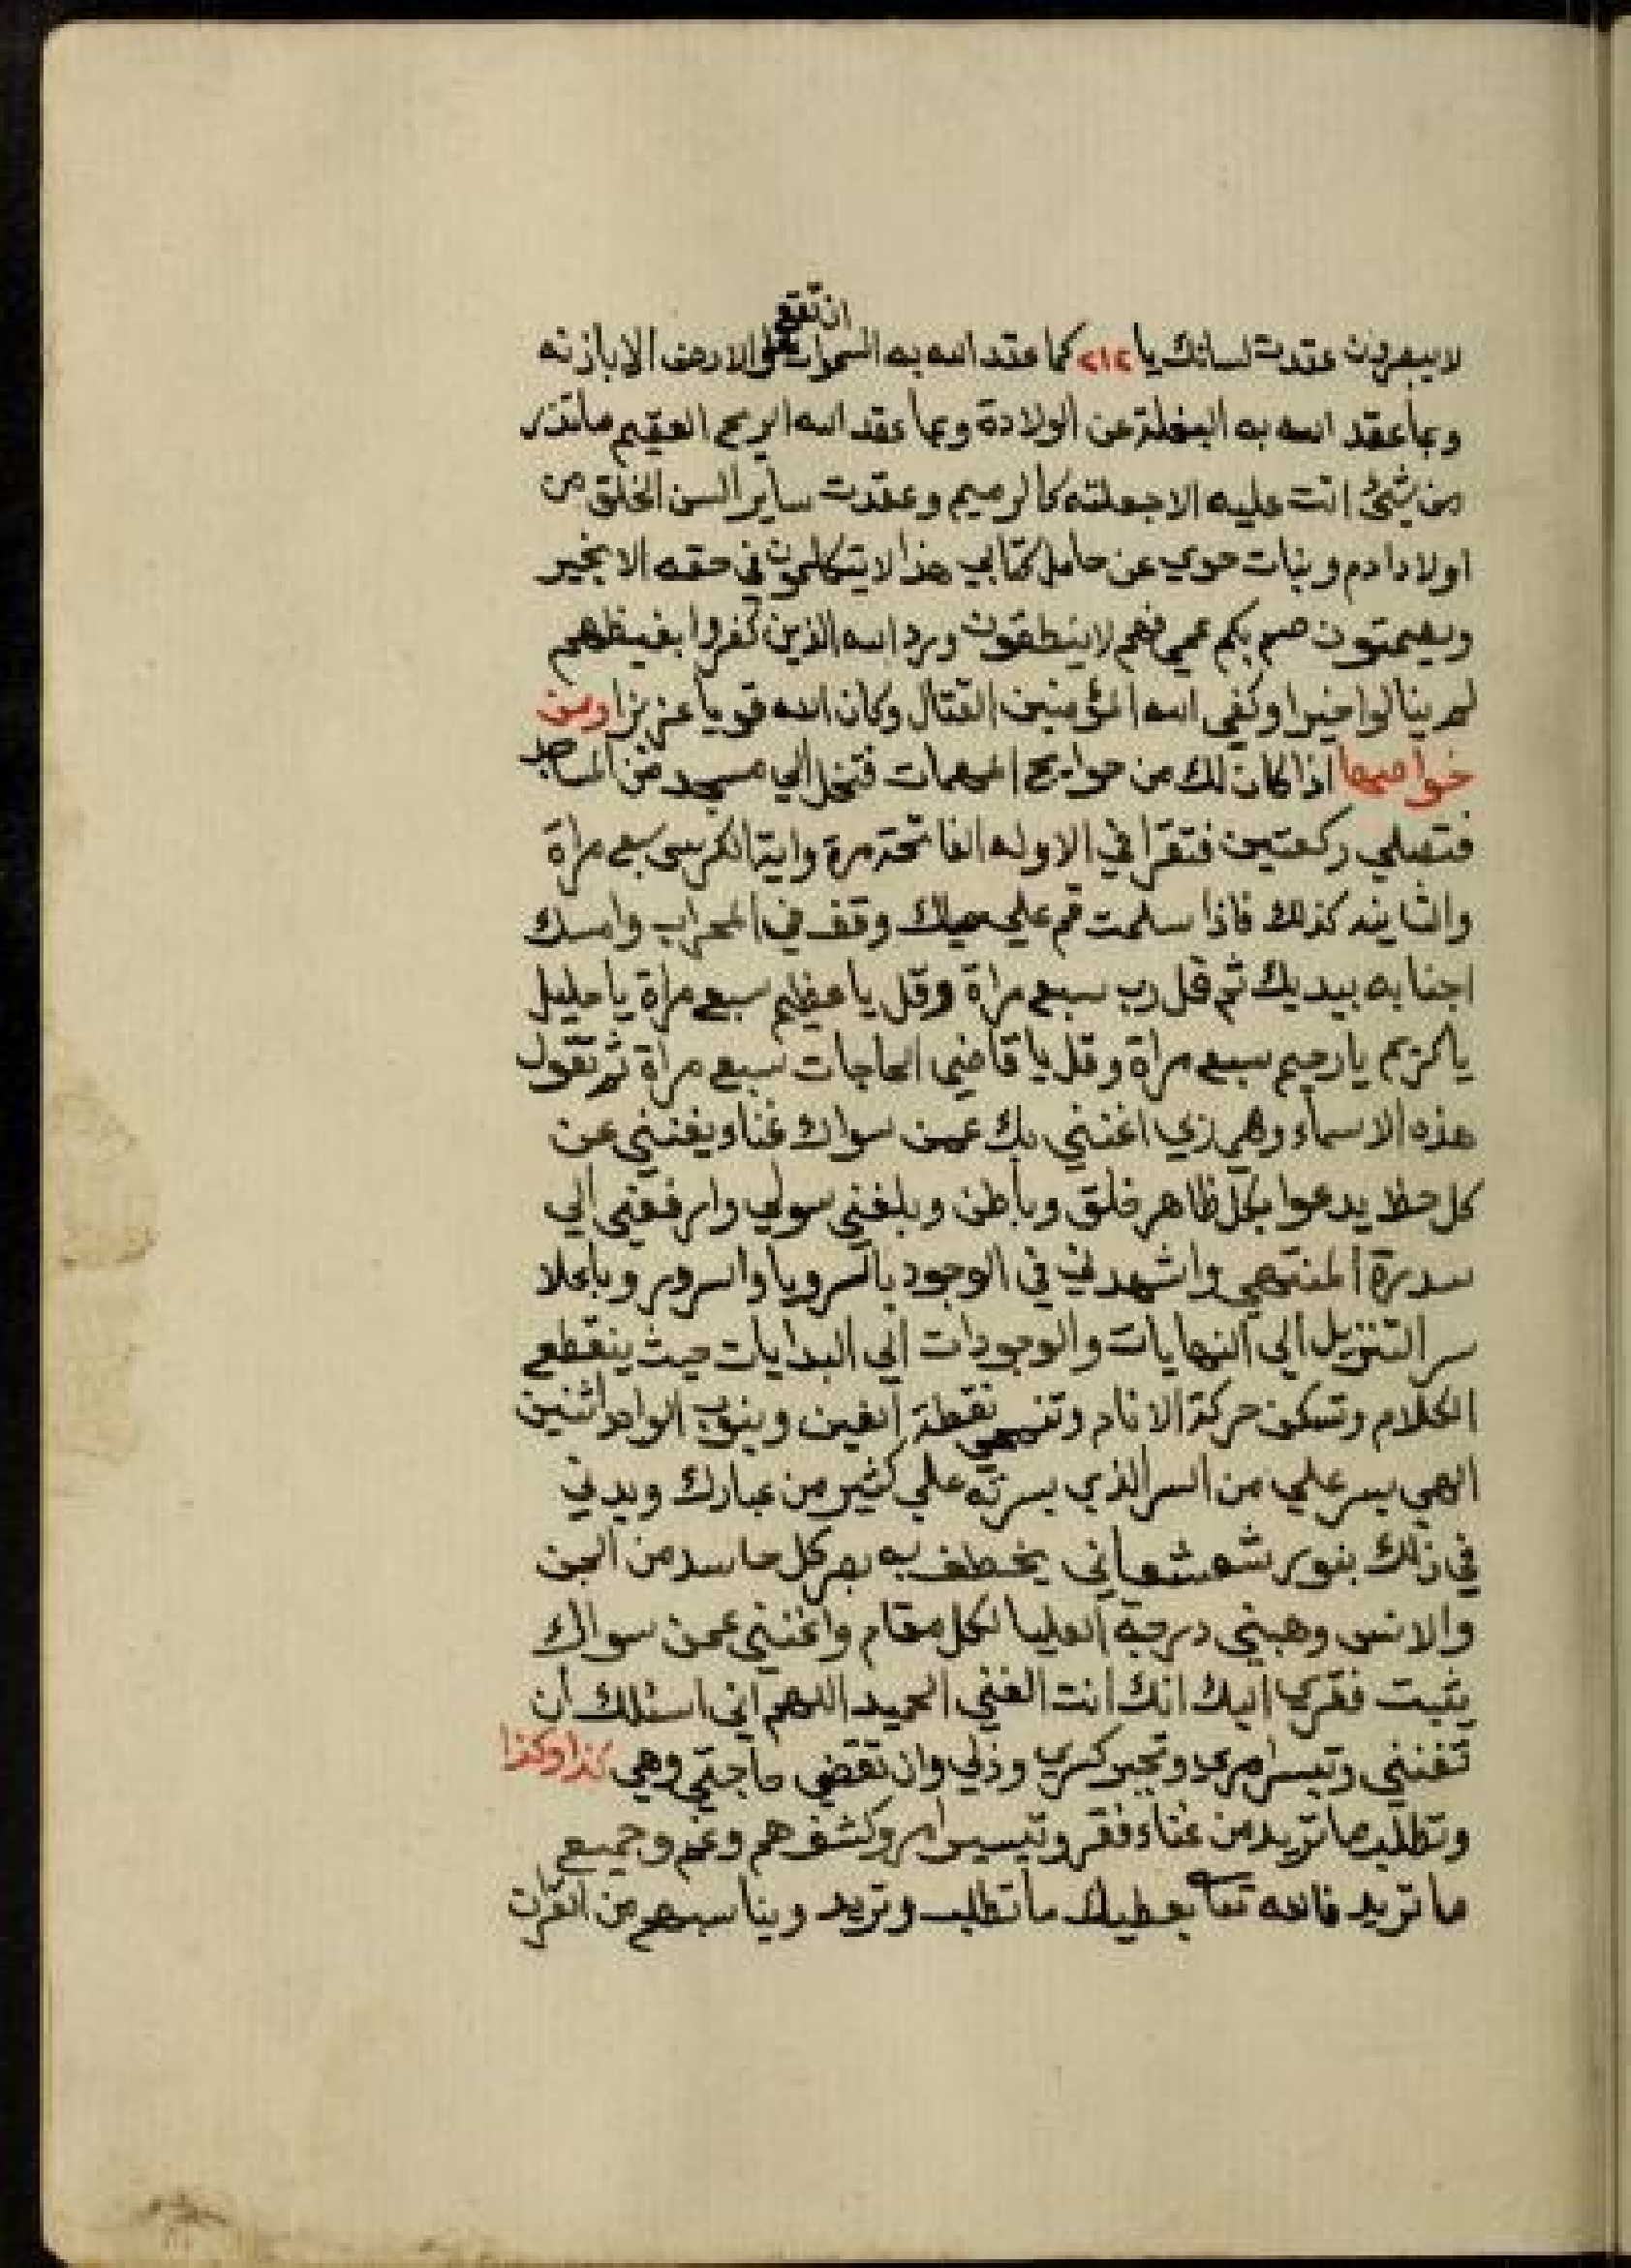 ان تقع
لا يبصرون عقدت لسانك يا ٢١٢ كما عقد الله به السموات علي الارض الا باذنه
وبما عقد الله به البغلة عن الولادة وبما عقد الله الريح العقيم ما تذر
من شئ اتت عليه الا جعلته كالرميم وعقدت ساير السن الخلق من
اولاد ادم وبنات حوي عن حامل كتابي هذا لا يتكلمون في حقه الا بخير
ويصمتون صم بكم عمي فهم لا ينطقون ورد الله الذين كفروا بغيظهم
لم ينالوا خيرا وكفي الله المؤمنين القتال وكان الله قويا عزيزا ومن
خواصها اذا كان لك من حوايج المهمات فتدخل الي مسجد من المساجد
فتصلي ركعتين فتقرا في الاوله الفاتحة مرة واية الكرسي سبع مراة
والثانيه كذلك فاذا سلمت قم علي حيلك وقف في المحراب وامسك
اجنابه بيديك ثم قل رب سبع مراة وقل يا عظيم سبع مراة يا جليل
يا كريم يا رحيم سبع مراة وقل يا قاضي الحاجات سبع مراة ثم تقول
هذه الاسماء وهم اغنني بك عمن سواك غناء يغنني عن
كل حظ يدعوا بكل ظاهر خلق وباطن وبلغني سولي وارفعني الي
سدرة المنتهي واشهدني في الوجود والسرور
سر التنزيل الي النهايات والوجودات الي البدايات حيث ينقطع
الكلام وتسكن حركة الانام وتنمحي نقطة الغين وينوب الواحد اثنين
الهي يسر علي من السر الذي يسرته علي كثير من عبادك ويدني
في ذلك بنور شعشعاني يخطف به بصر كل حاسد من الجن
والانس وهبني درجة العليا لكل مقام واغنني عمن سواك
بثبت فقري اليك انك انت الغني الحميد اللهم اني اسئلك ان
تغنني وتيسر امري وتجبر كسري وذلي وان تقضي حاجتي وهي كذا وكذا
وتطلب ما تريد من غناء فقر وتيسير امر وكشف هم وغم وجميع
ما تريد فالله تعا يعطيك ما تطلب وتريد ويناسبهم من القران